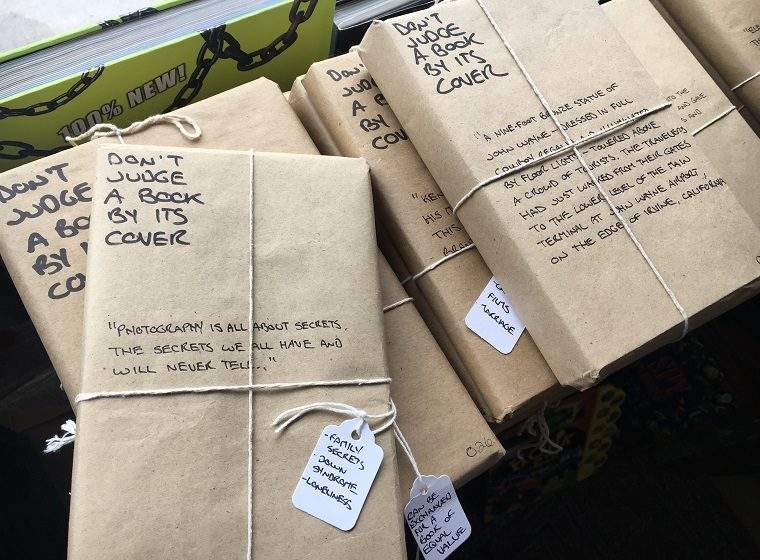 100% NEW!
DON'T
JUDGE
A BOOK
BY ITS
COVER
"PHOTOGRAPHY IS ALL ABOUT SECRETS.
THE SECRETS WE ALL HAVE AND
WILL NEVER TELL..."
-FAMILY
SECRETS
-DOWN
SYNDROME
-LONELINESS
CAN BE
EXCHANGED
FOR A
BOOK OF
EQUAL
VALUE
DON'T
JUDGE
A BO
BY I
CO
DON'
JUD
A B
BY
COV
"KEN
HIS
THIS
FILMS
MARRIAGE
DON'T
JUDGE
A BOOK
BY ITS
COVER
"A NINE-FOOT BRONZE STATUE OF
JOHN WAYNE - DRESSED IN FULL
COWBOY REGALIA AND ILLUMINATED
BY FLOOR LIGHTS - TOWERED ABOVE
A CROWD OF TOURISTS. THE TRAVELERS
HAD JUST WALKED FROM THEIR GATES
TO THE LOWER LEVEL OF THE MAIN
TERMINAL AT JOHN WAYNE AIRPORT,
ON THE EDGE OF IRVINE, CALIFORNIA
TO THE
AND GAVE
AND